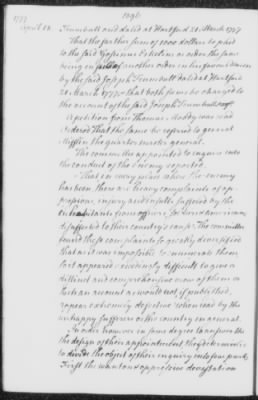 1777
1096
April 18. Trumbull and dated at Hartford 20. March 1777
That the farther sum of 1000 dollars be paid
to the said Governor or order the same
being in of another order in his favour drawn
by the said Joseph Trumbull dated at Hartford
20. March 1777 that both sums be charged to
the account of the said Joseph Trumbull
A petition from Thomas was read
Ordered That the same be referred to general
Mifflin the quarter master general.
The committee appointed to enquire into
the conduct of the enemy reported
"That in every place where the enemy
has been there are heavy complaints of op-
pression, injury and insults suffered by the
inhabitants from officers, soldiers and Americans
disaffected to their country's cause. The committee
found these complaints so greatly diversified
that as it was impossible to enumerate them
so it appeared exceedingly difficult to give a
distinct and comprehensive view of them or
such an account as would not, if published,
appear extremely defective when read by the
unhappy sufferers or the country in general.
In order however in some degree to answer the
the design of their appointment they determined
to divide the object of their enquiry into four parts
First The wanton & oppressive devastation